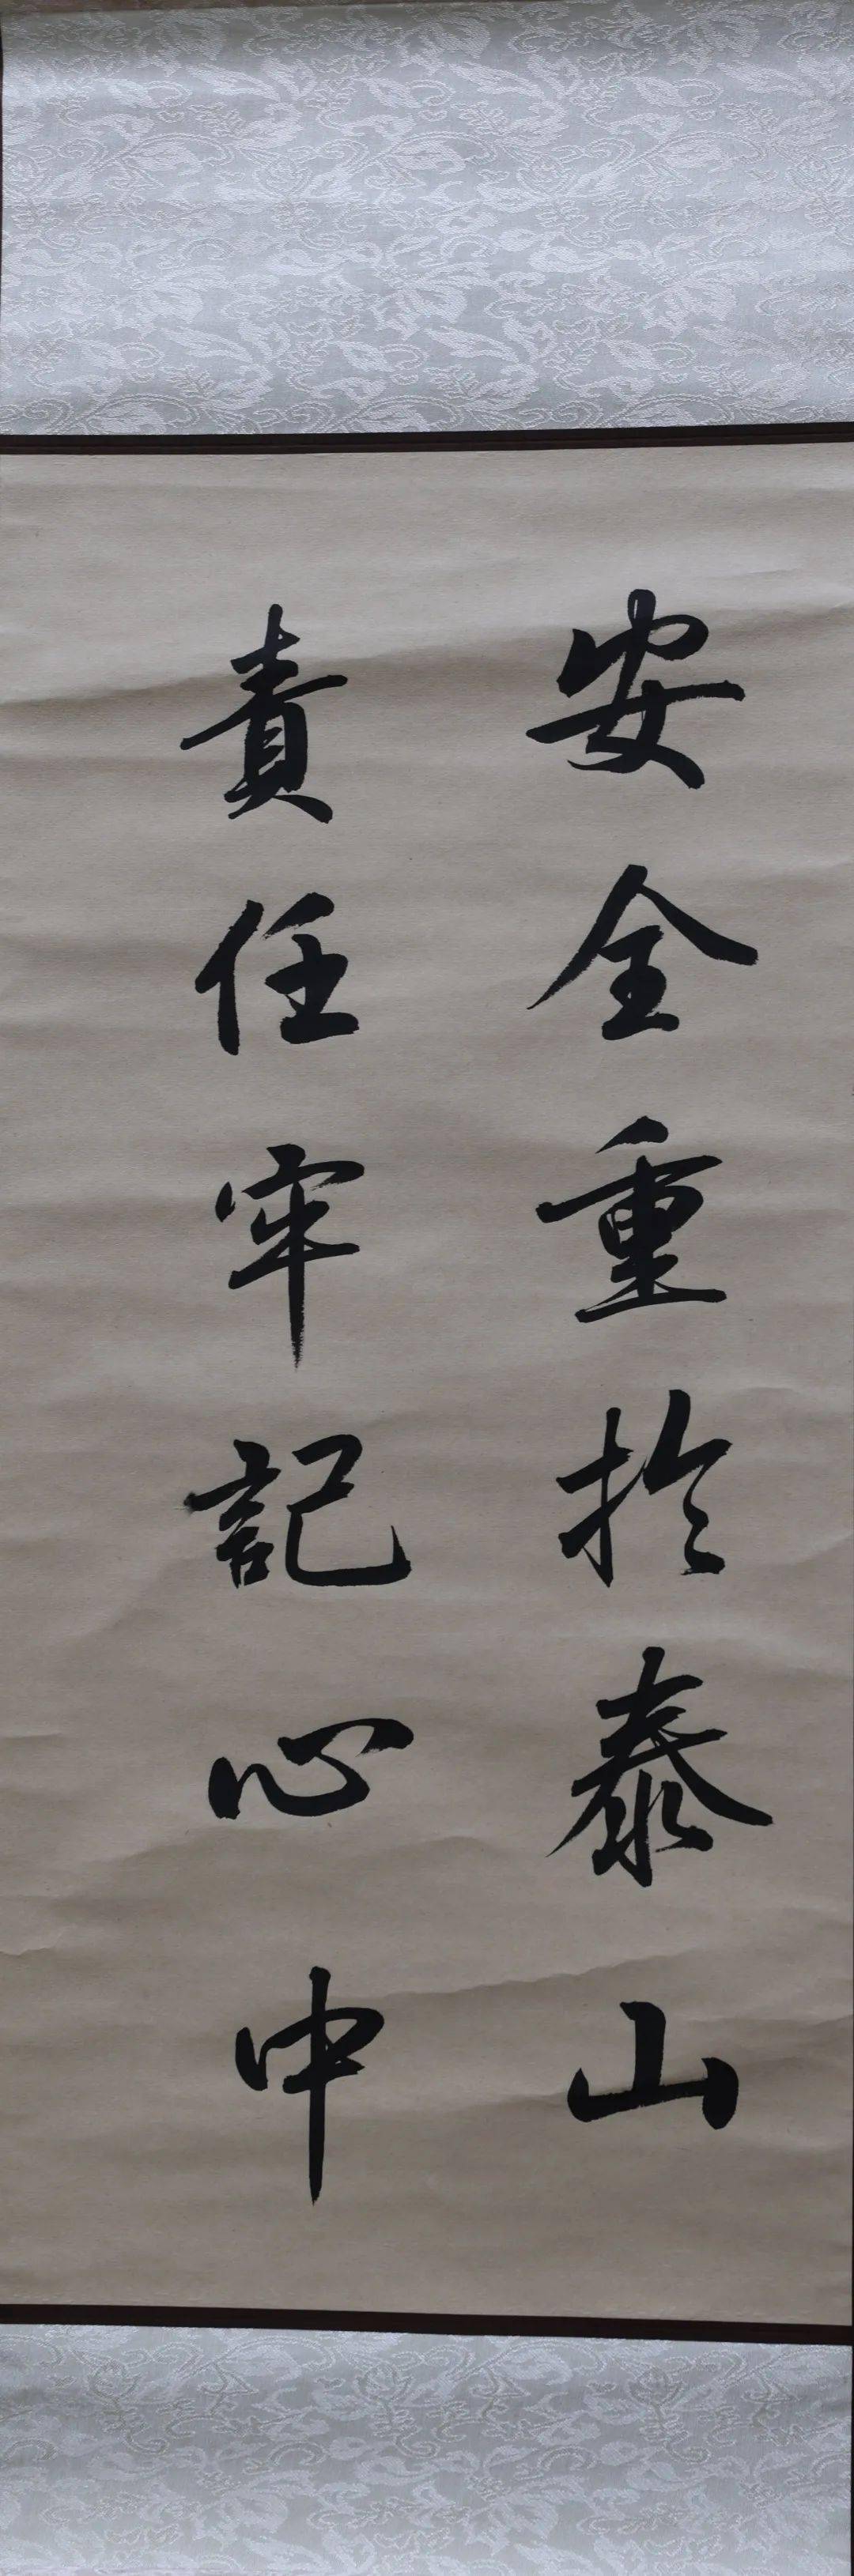 安全重於泰山
責任牢記心中